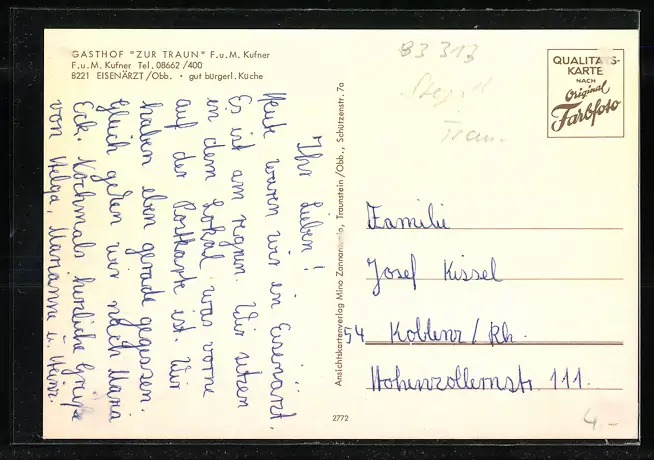 GASTHOF "ZUR TRAUN" F.u.M. Kufner
F.u.M. Kufner Tel. 08662/400
8221 EISENÄRZT/Obb. • gut bürgerl. Küche
Ihr Lieben!
Heute waren wir in Eisenärzt.
Es ist am regnen. Wir sitzen
in dem Lokal was vorne
auf der Postkarte ist. Wir
haben eben gerade gegessen.
Gleich gehen wir nach Maria
Eck. Nochmals herzliche Grüße
von Helga, Marianne u. Heinz.
Ansichtskartenverlag Mino Zannantonio, Traunstein/Obb., Schützenstr. 7a
2772
83 313
QUALITÄTS-
KARTE
NACH
Original
Farbfoto
Familie
Josef Kissel
54 Koblenz/Rh.
Hohenzollernstr. 111.
4 -